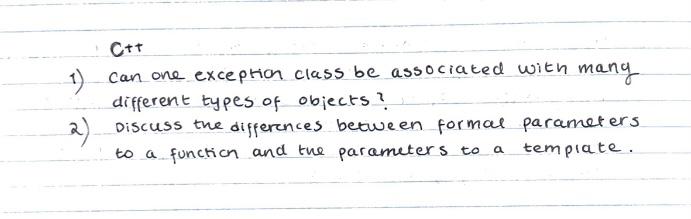 C++
1) can one exception class be associated with many
different types of objects?
2) Discuss the differences between formal parameters
to a function and the parameters to a template.